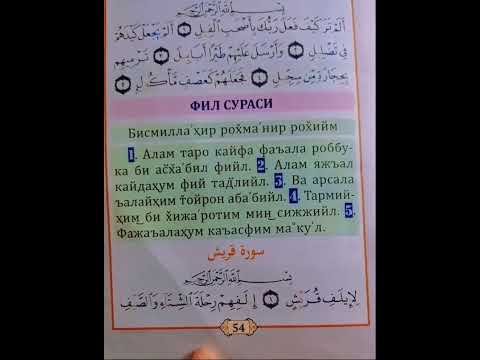 بِسْمِ اللَّهِ الرَّحْمَٰنِ الرَّحِيمِ
أَلَمْ تَرَ كَيْفَ فَعَلَ رَبُّكَ بِأَصْحَٰبِ الْفِيلِ ١ أَلَمْ يَجْعَلْ كَيْدَهُمْ
فِي تَضْلِيلٍ ٢ وَأَرْسَلَ عَلَيْهِمْ طَيْرًا أَبَابِيلَ ٣ تَرْمِيهِم
بِحِجَارَةٍ مِّن سِجِّيلٍ ٤ فَجَعَلَهُمْ كَعَصْفٍ مَّأْكُولٍ ٥
ФИЛ СУРАСИ
Бисмилла҆ҳир роҳ̆ма҆нир роҳ̆ийм
1. Алам таро кайфа фаъала роббу-
ка би асҳ̆а҆бил фийл. 2. Алам яжъал
кайдаҳум фий тадлийл. 3. Ва арсала
ъалайҳим тойрон аба҆бийл. 4. Тармий-
ҳим би ҳ̆ижа҆ротим мин сижжийл. 5.
Фажаъалаҳум каъасфим ма"ку҆л.
سورة قريش
بِسْمِ اللَّهِ الرَّحْمَٰنِ الرَّحِيمِ
لِإِيلَٰفِ قُرَيْشٍ ١ إِۦلَٰفِهِمْ رِحْلَةَ الشِّتَاءِ وَالصَّيْفِ
54